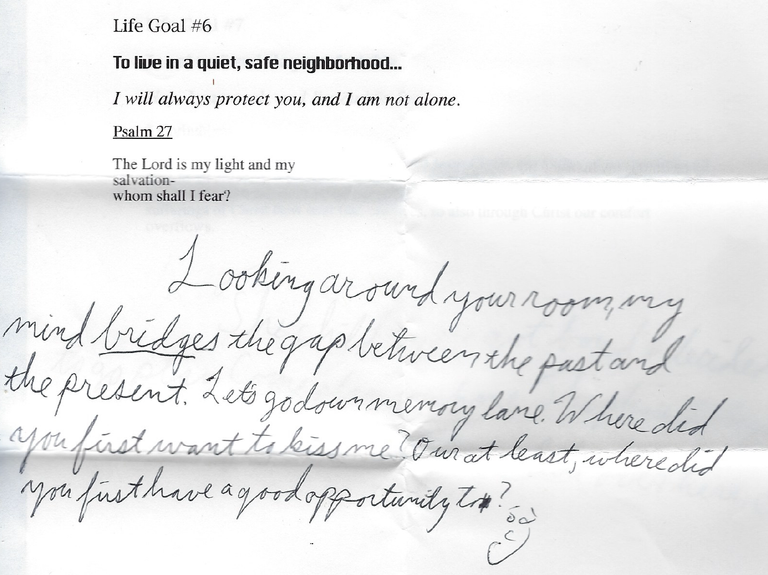 Life Goal #6
To live in a quiet, safe neighborhood...
I will always protect you, and I am not alone.
Psalm 27
The Lord is my light and my
salvation-
whom shall I fear?
Looking around your room, my
mind bridges the gap between the past and
the present. Let's go down memory lane. Where did
you first want to kiss me? Our at least, where did
you first have a good opportunity to?